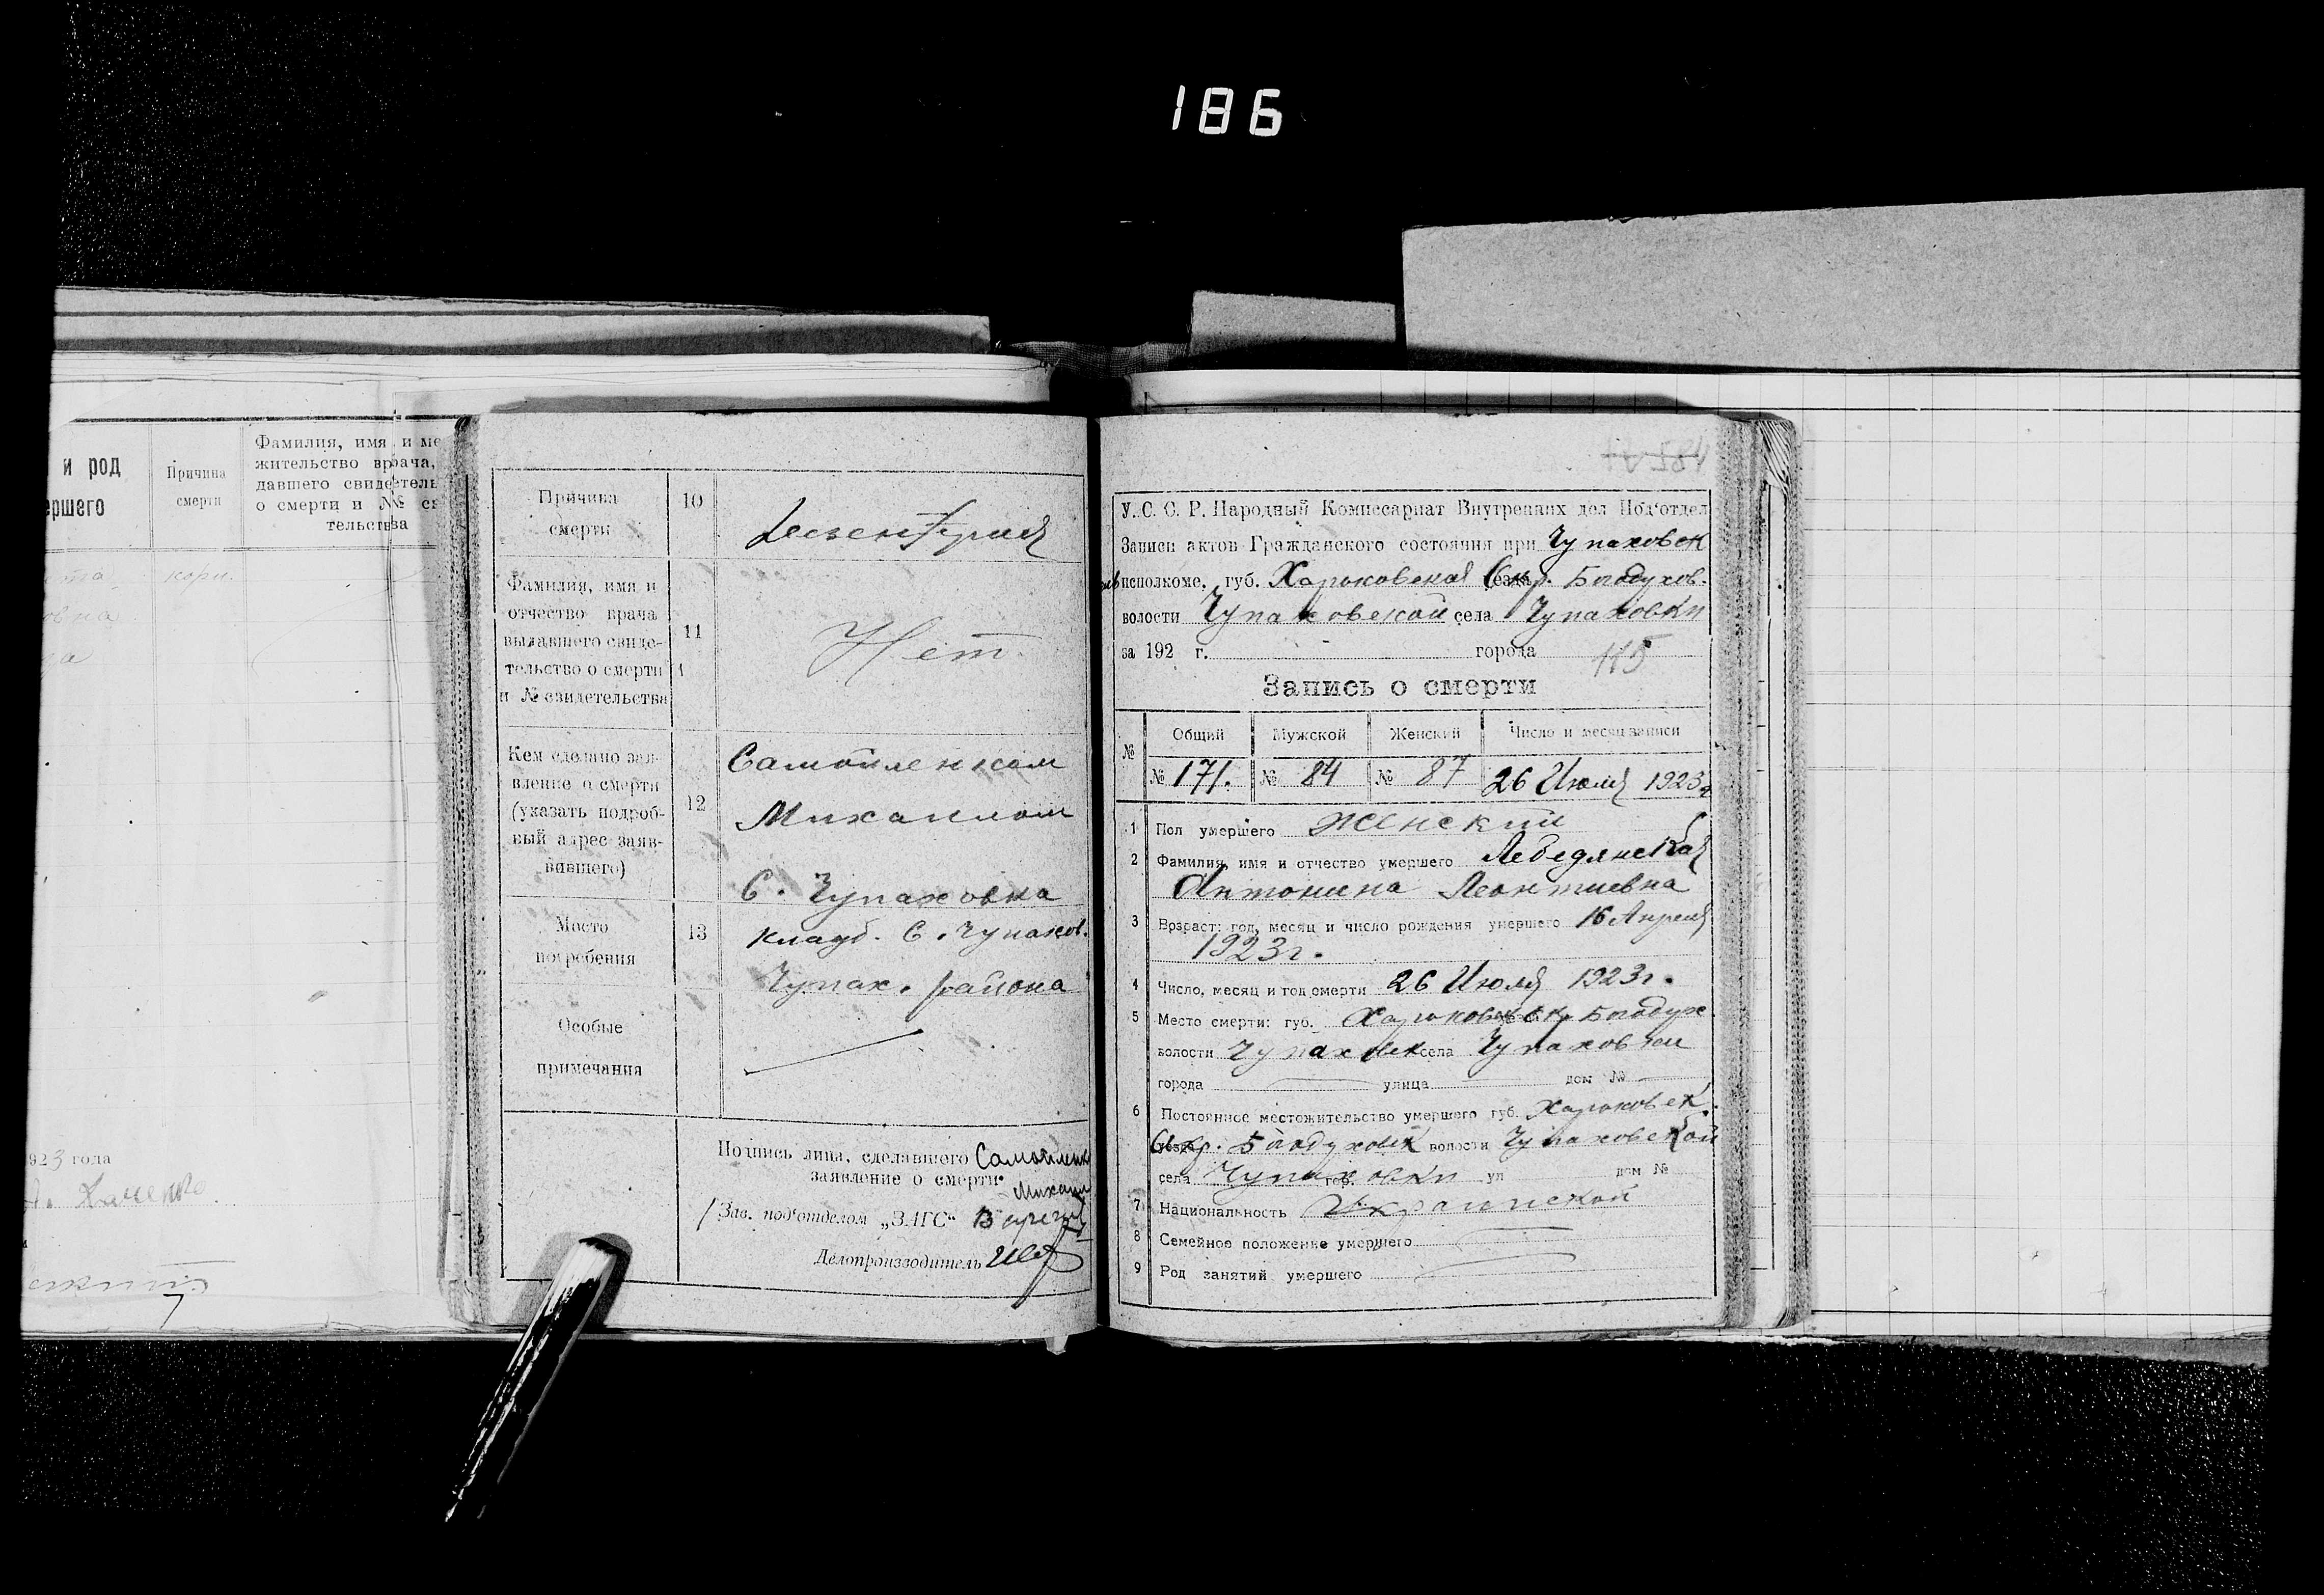 186
и род
ершего
Причина
смерти
Фамилия, имя и ме
жительство врача,
давшего свидетель
о смерти и №№ св
тельства
корн.
овна
1923 года
Причина
смерти
10
Дизентерия
Фамилия, имя и
отчество врача
выдавшего свиде-
тельство о смерти
и № свидетельства
11
Нет
Кем сделано зая-
вление о смерти
(указать подроб-
ный адрес заяв-
вившего)
12
Самойленком
Михаилом
С. Чупаховка
Место
погребения
13
кладб. С. Чупахов.
Чупах. района
Особые
примечания
Подпись лица, сделавшего Самойленко
заявление о смерти Михаил
Зав. под'отделом „ЗАГС"
Делопроизводитель
У. С. С. Р. Народный Комиссариат Внутренних дел Под'отдел
Записи актов Гражданского состояния при Чупаховск
исполкоме, губ. Харьковская Окр. Богодухов.
волости Чупаховской села Чупаховки
за 192 г. города 115
Запись о смерти
№ Общий Мужской Женский Число и месяц записи
№ 171. № 84 № 87 26 Июля 1923 г
1 Пол умершего Женский
2 Фамилия, имя и отчество умершего Лебедянская
Антонина Леонтиевна
3 Возраст: год, месяц и число рождения умершего 16 Апреля
1923 г.
4 Число, месяц и год смерти 26 Июля 1923 г.
5 Место смерти: губ. Харьков Окр Богодух
волости Чупаховск села Чупаховки
города улица дом №
6 Постоянное местожительство умершего губ. Харьковск.
Окр. Богодуховск волости Чупаховской
села Чупаховки гор. ул дом №
7 Национальность Украинской
8 Семейное положение умершего
9 Род занятий умершего